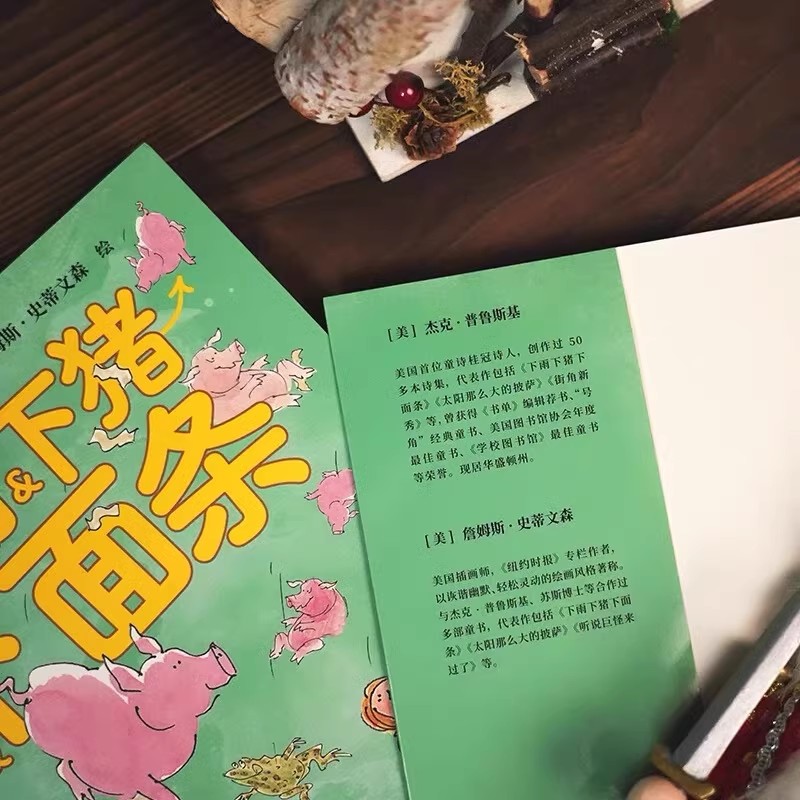 姆斯·史蒂文森 绘
&下猪
面条
［美］杰克·普鲁斯基
美国首位童诗桂冠诗人，创作过 50
多本诗集，代表作包括《下雨下猪下
面条》《太阳那么大的披萨》《街角新
秀》等，曾获得《书单》编辑荐书、“号
角”经典童书、美国图书馆协会年度
最佳童书、《学校图书馆》最佳童书
等荣誉。现居华盛顿州。
［美］詹姆斯·史蒂文森
美国插画师，《纽约时报》专栏作者，
以诙谐幽默、轻松灵动的绘画风格著称。
与杰克·普鲁斯基、苏斯博士等合作过
多部童书，代表作包括《下雨下猪下面
条》《太阳那么大的披萨》《听说巨怪来
过了》等。